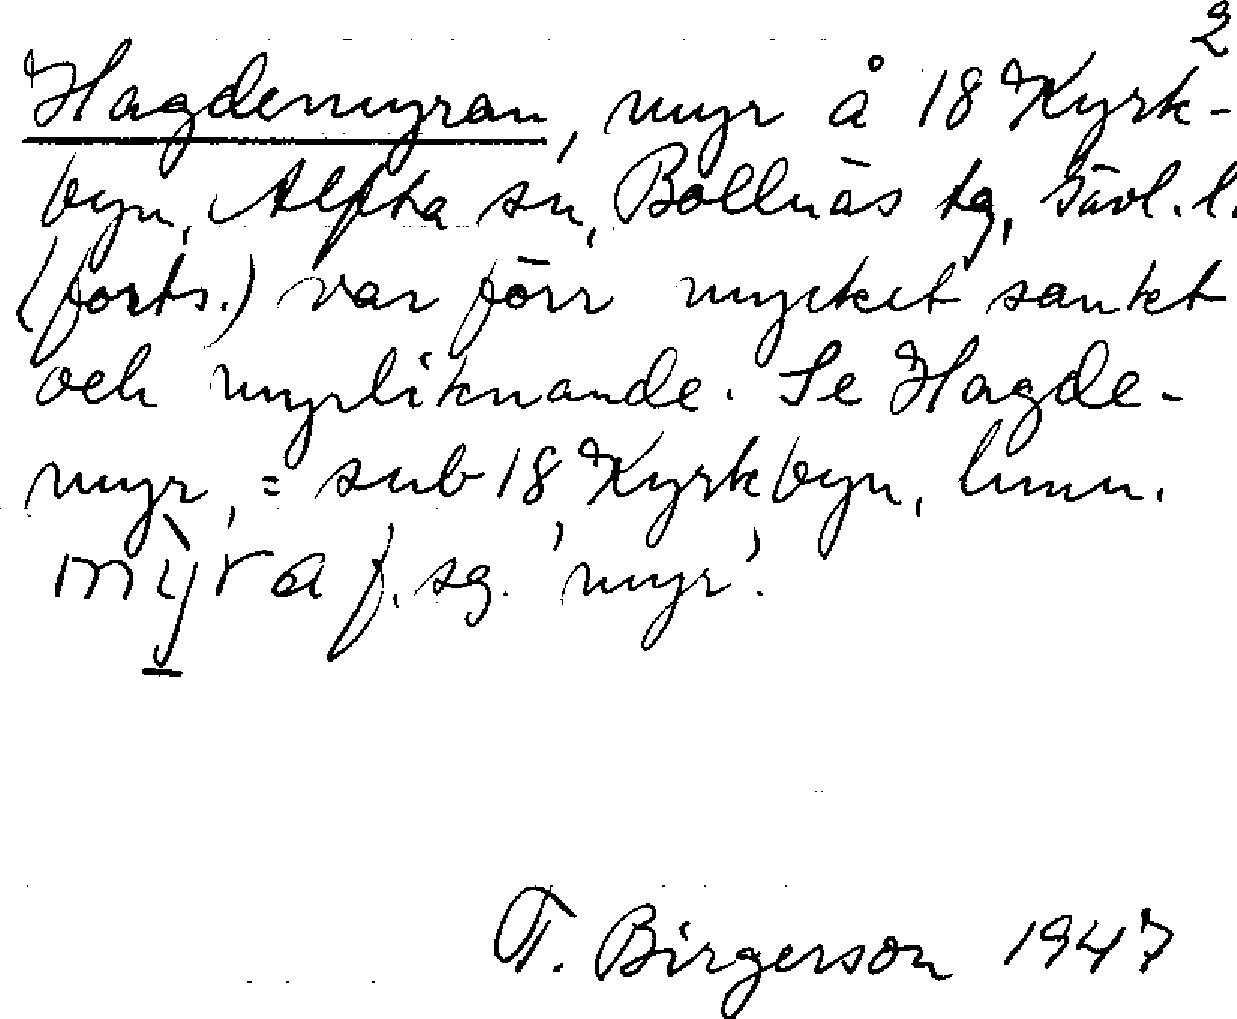 2
Hagdemyran, myr å 18 Kyrk-
byn, Alfta sn, Bollnäs tg, Gävl. l.
(forts.) var förr mycket sankt
och myrliknande. Se Hagde-
myr, = sub 18, Kyrkbyn,
mỳra f. sg. 'myr'.
T. Birgerson 1947